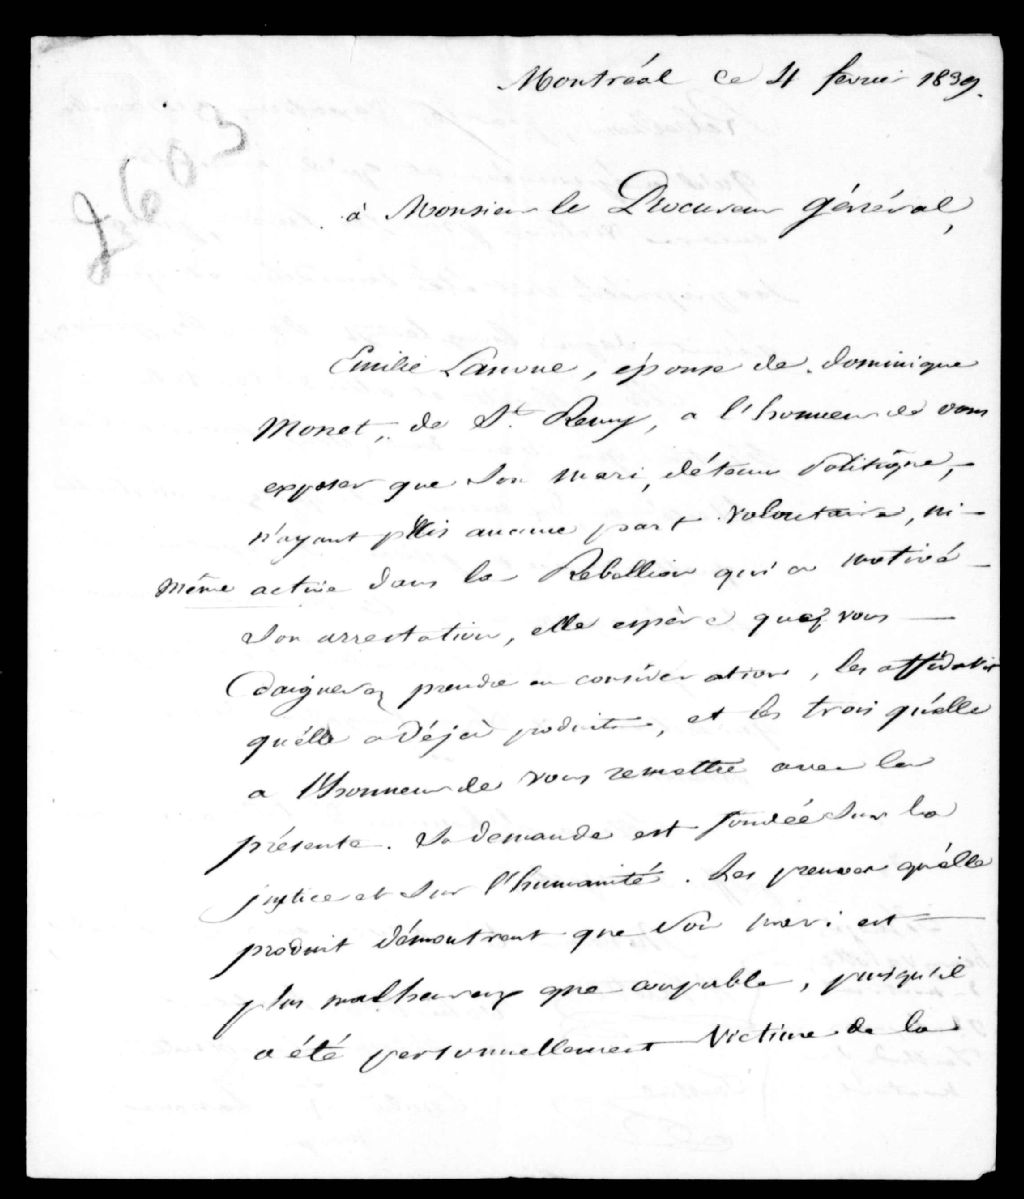 Montréal ce 4 fevrier 1839.
2603
à Monsieur le Procureur général,
Emilie Lanoue, épouse de Dominique
Monet, de St. Remy, a l'honneur de vous
exposer que son mari, détenu Politique,
n'ayant pris aucune part volontaire, ni
même active dans la Rebellion qui a motivé
son arrestation, elle espère que vous
daignerez prendre en consideration, les affidavits
qu'elle a Déjà produits, et les trois qu'elle
a l'honneur de vous remettre avec la
présente. Sa demande est fondée sur la
justice et sur l'humanité. Les preuves qu'elle
produit démontrent que son mari est
plus malheureux que coupable, puisqu'il
a été personnellement Victime de la